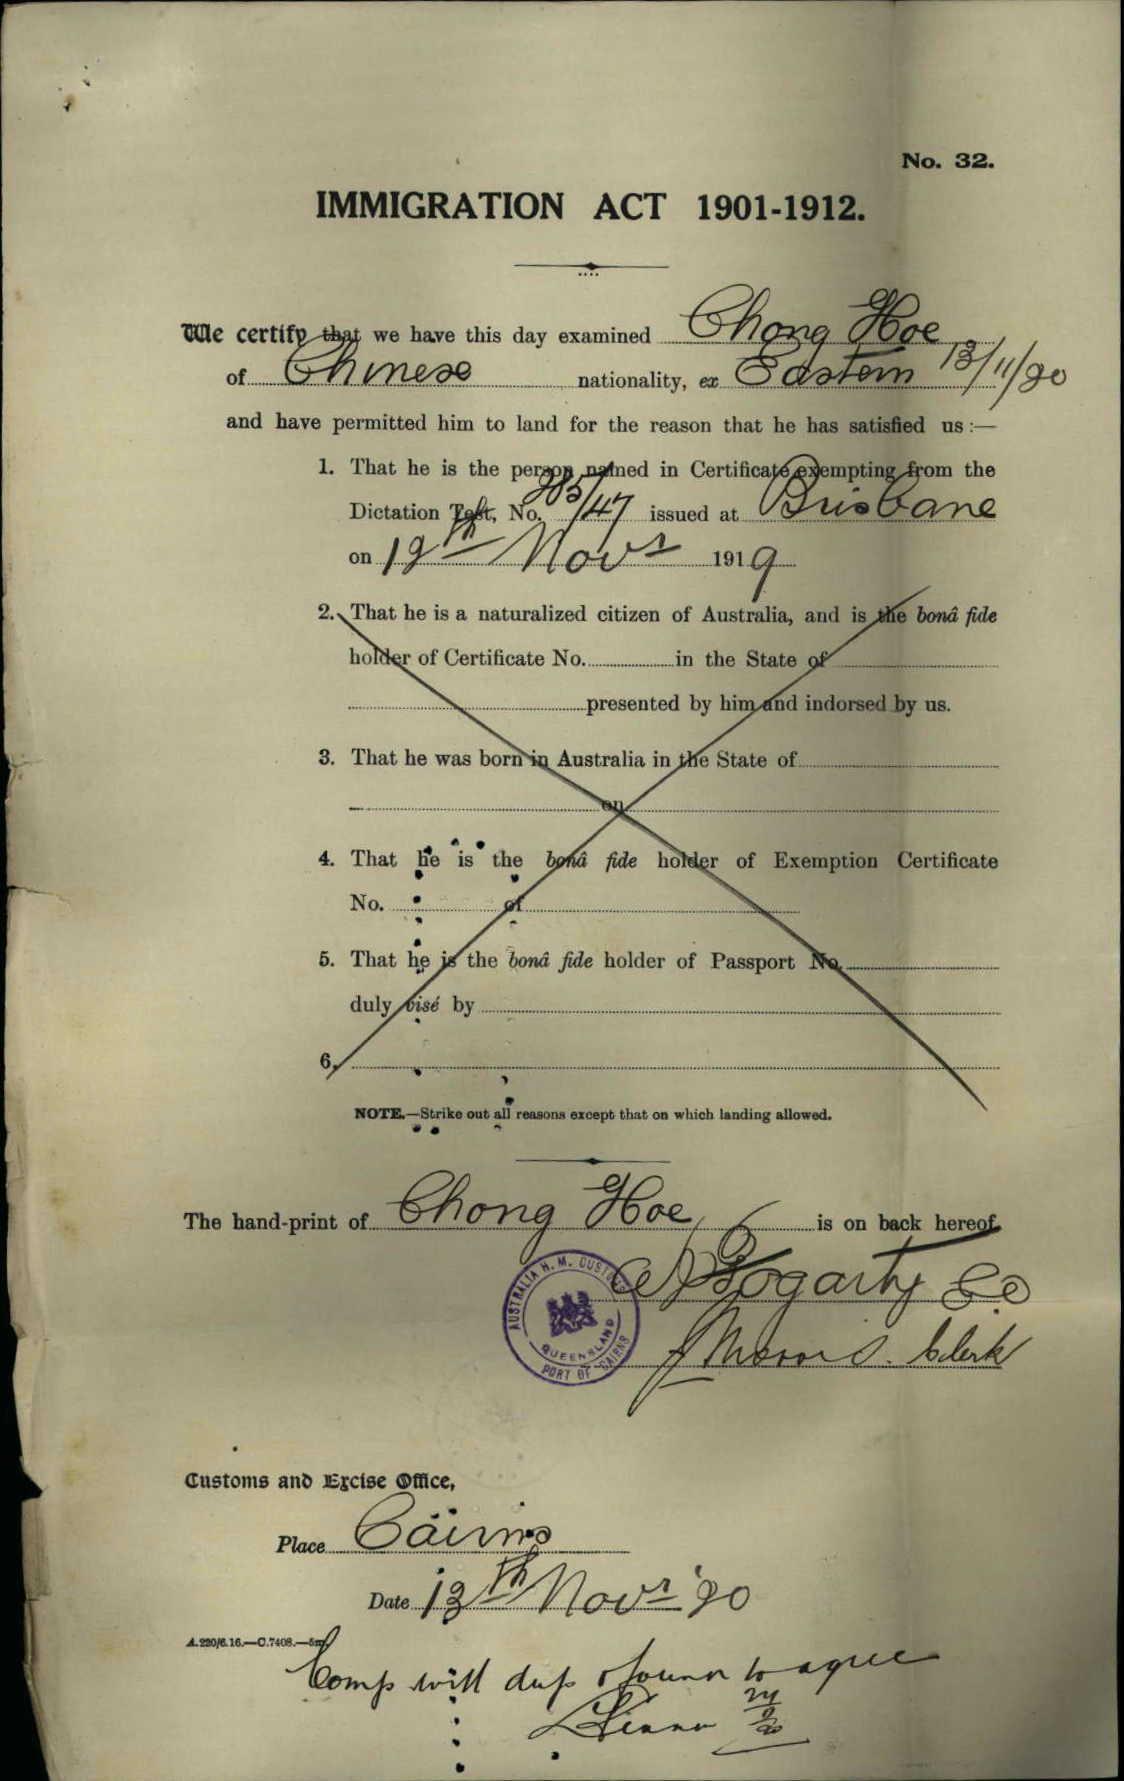 No. 32.
IMMIGRATION ACT 1901-1912.
We certify that we have this day examined Chong Hoe
of Chinese nationality, ex Eastern 13/11/20
and have permitted him to land for the reason that he has satisfied us :—
1. That he is the person named in Certificate exempting from the
Dictation Test, No. 285/47 issued at Brisbane
on 12th Novr 1919
2. That he is a naturalized citizen of Australia, and is the bonâ fide
holder of Certificate No. in the State of
presented by him and indorsed by us.
3. That he was born in Australia in the State of
on
4. That he is the bonâ fide holder of Exemption Certificate
No. of
5. That he is the bonâ fide holder of Passport No.
duly visé by
6.
NOTE.—Strike out all reasons except that on which landing allowed.
The hand-print of Chong Hoe is on back hereof
Fogarty
AUSTRALIA H. M. CUSTOMS
QUEENSLAND
PORT OF CAIRNS
Clerk
Customs and Excise Office,
Place Cairns
Date 13th Novr '20
A.220/6.16.—C.7408.—5m.
Comp with dup & found to agree